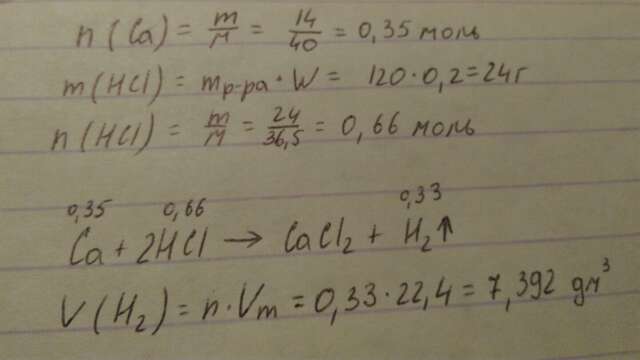 n(Ca) = m/M = 14/40 = 0,35 моль
m(HCl) = mр-ра · W = 120 · 0,2 = 24г
n(HCl) = m/M = 24/36,5 = 0,66 моль
0,35 0,66 0,33
Ca + 2HCl → CaCl₂ + H₂↑
V(H₂) = n · Vm = 0,33 · 22,4 = 7,392 дм³